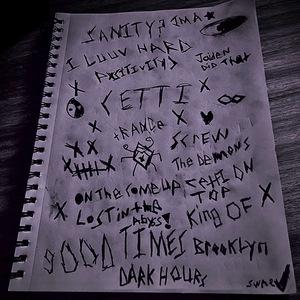 SANITY? IMA
I LUUV HARD
POSITIVITY
Jaden
DID THAT
CETTI
TRANCE
SCREW
The DEMONS
ON THE COME UP
SETTL ON
TOP
LOST IN THE
Abyss!
King OF
GOOD TIMES
Brooklyn
DARK HOURS